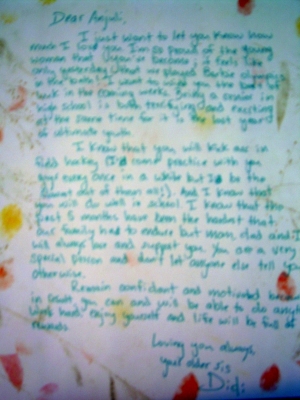 Dear Anjali,
I just want to let you know how
much I love you. I'm so proud of the young
woman that you've become; it feels like
only yesterday that we played Barbie olympics
in the I want to wish you the best
luck in the coming weeks. Being a senior in
high school is both terrifying and exciting
at the same time for it is the last years
of ultimate youth.
I know that you will kick ass in
field hockey (I'd come practice with you
guys every once in a while but I'd be the
out of them all). And I know that
you will do well in school. I know that the
first 5 months have been the hardest that
our family had to endure but mom, dad and I
will always love and support you. You are a very
special person and don't let anyone else tell you
otherwise.
Remain confident and motivated
in you can and you'll be able to do
Work hard, enjoy yourself and life will be full of
rewards.
Loving you always,
your older sis
Didi